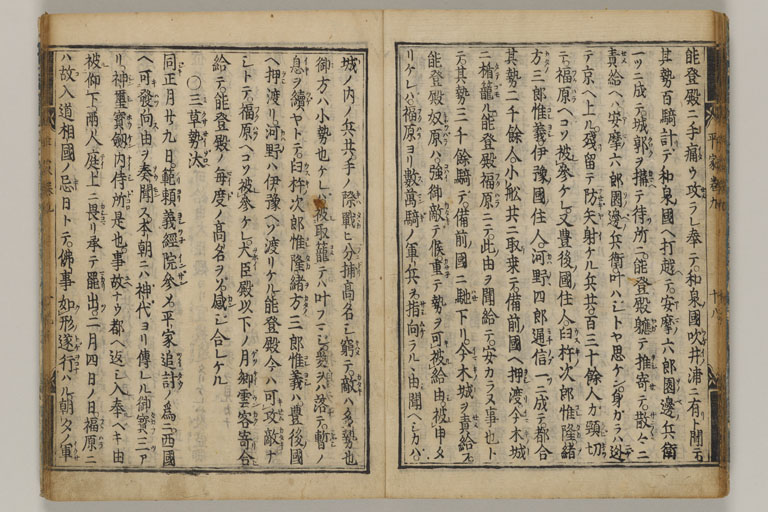 能登殿ニ手痛ウ攻ラレ奉テ。和泉國吹井浦ニ有ト聞テ
其勢百騎計テ和泉國ヘ打越テ。安摩六郎園邊兵衛
一ツニ成テ。城郭ヲ搆テ待所ニ能登殿軈テ推寄テ。散々ニ
責給ヘハ安摩六郎園邊兵衛叶ハシトヤ思ケン。身カラハ迯
テ京ヘ上ル。残留テ防矢射ケル兵共。百三十餘人カ頸切
テ。福原ヘコソ被参ケレ又豊後國住人臼杵次郎惟隆緒
方三郎惟義伊豫國住人。河野四郎通信一ツニ成テ都合
其勢二千餘人小舩共ニ取乗テ備前國ヘ押渡今木城
ニ楯籠ル能登殿福原ニテ。此由ヲ聞給テ。安カラヌ事也ト
テ。其勢三千餘騎テ。備前國ニ馳下リ。今木城ヲ責給フ。
能登殿奴原ハ強御敵テ候重テ勢ヲ可被給由。被申タ
リケレハ。福原ヨリ數萬騎ノ軍兵ヲ指向ラルヽ由聞ヘシカハ。
城ノ内ノ兵共手ノ際戰ヒ分捕高名シ窮テ。敵ハ多勢也
御方ハ小勢也ケレハ。被取籠テハ叶フマシ。爰ヲハ落テ。暫ノ
息ヲ續ヤトテ。臼杵次郎惟隆緒方三郎惟義ハ豊後國
ヘ押渡リ。河野ハ伊豫ヘソ渡リケル能登殿今ハ可攻敵ナ
シトテ。福原ヘコソ被参ケレ。大臣殿以下ノ月卿雲客寄合
給テ。能登殿ノ毎度ノ高名ヲソ。感シ合レケル
〇三草勢汰
同正月廿九日。範頼義經院参メ平家追討ノ為ニ西國
ヘ可發向由ヲ奏聞ス本朝ニハ神代ヨリ傳レル御寳三ア
リ。神璽寳劔内侍所是也。事故ナウ都ヘ返シ入奉ヘキ由
被仰下。両人庭上ニ畏リ承テ罷出。二月四日ノ日福原ニ
ハ故入道相國ノ忌日トテ。佛事如形遂行ハル朝夕ノ軍